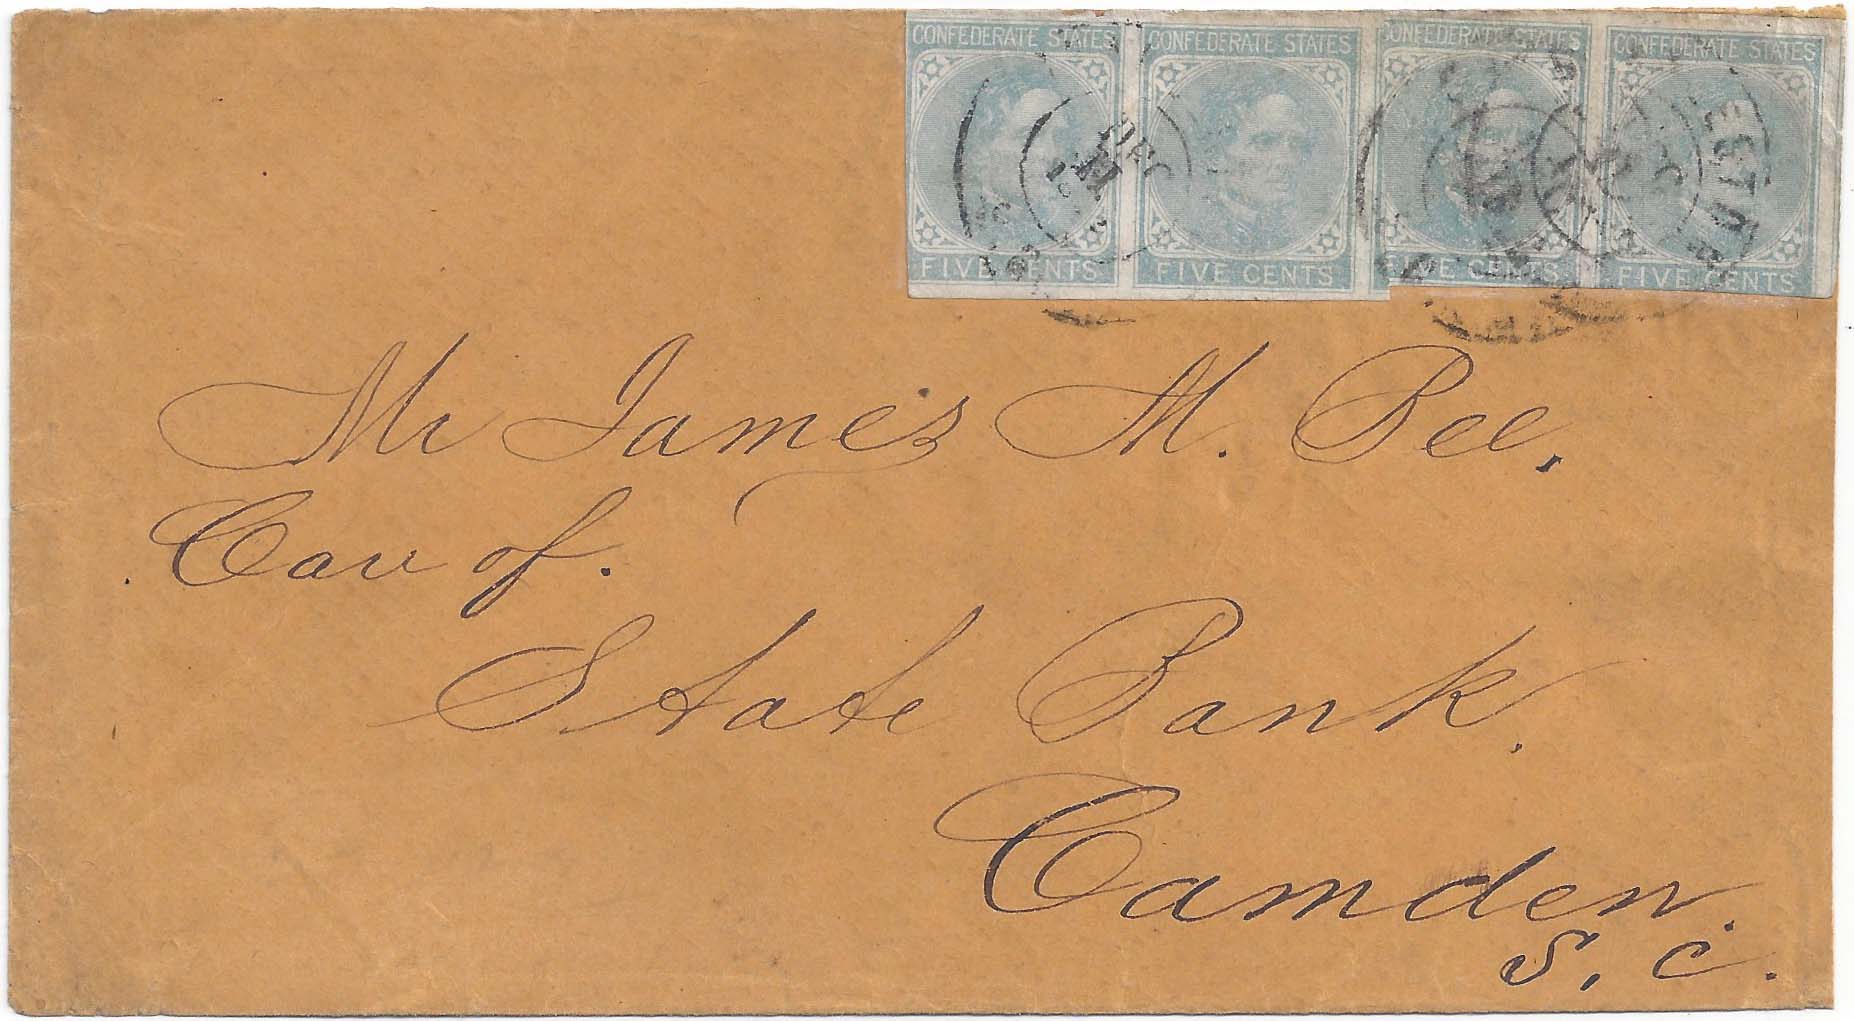 CONFEDERATE STATES CONFEDERATE STATES CONFEDERATE STATES CONFEDERATE STATES
DEC
FIVE CENTS FIVE CENTS FIVE CENTS FIVE CENTS
Mr James M. Bee,
Care of.
State Bank,
Camden.
S. C.